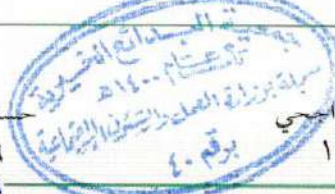 جمعية البدائع الخيرية
تأسست عام ١٤٠٠هـ
مسجلة بوزارة العمل والشئون الاجتماعية
برقم ٤٠
اجحي
حسـ
١